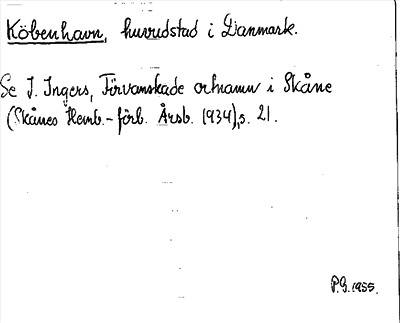 Köbenhavn, huvudstad i Danmark.
Se I. Ingers, Förvanskade ortnamn i Skåne
(Skånes Hemb.-förb. Årsb. 1934), s. 21.
P.G. 1955.